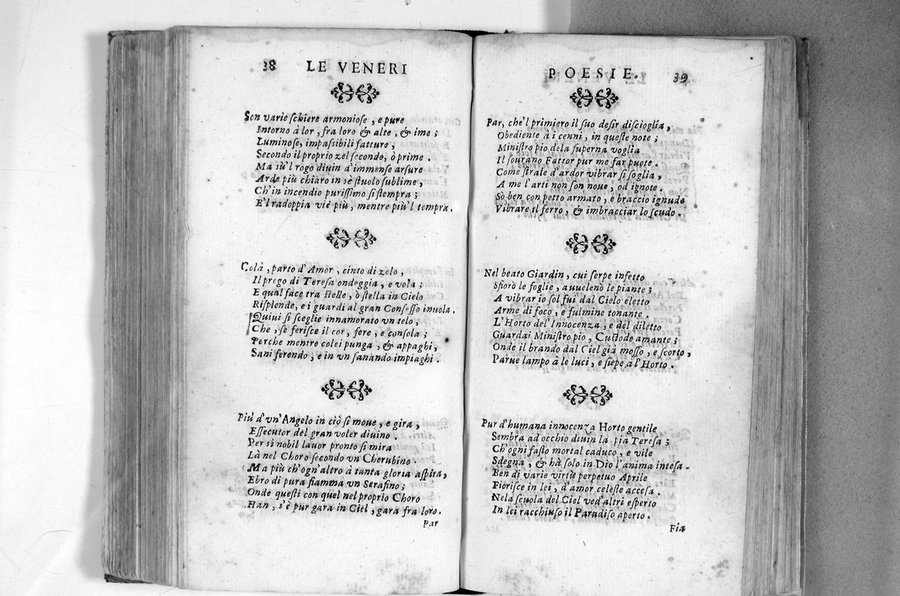 38 LE VENERI
Sen varie schiere armoniose, e pure
Intorno à lor, fra loro & alte, & ime;
Luminose, impassibili fatture,
Secondo il proprio zel seconde, ò prime.
Ma sù'l rogo diuin d'immense arsure
Arde più chiaro in sè stuolo sublime,
Ch'in incendio purissimo si stempra;
E'l radoppia vie più, mentre più'l tempra.
Colà, parto d'Amor, cinto di zelo,
Il prego di Teresa ondeggia, e vola;
E qual face tra stelle, ò stella in Cielo
Risplende, e i guardi al gran Consesso inuola.
Quiui si sceglie innamorato vn telo,
Che, se ferisce il cor, fere, e consola;
Perche mentre colei punga, & appaghi,
Sani ferendo, e in vn sanando impiaghi.
Più d'vn'Angelo in ciò si moue, e gira,
Essecutor del gran voler diuino.
Per sì nobil lauor pronto si mira
Là nel Choro secondo vn Cherubino.
Ma più ch'ogn'altro à tanta gloria aspira,
Ebro di pura fiamma vn Serafino;
Onde questi con quel nel proprio Choro
Han, s'è pur gara in Ciel, gara fra loro.
Par
POESIE. 39
Par, che'l primiero il suo desir discioglia,
Obediente à i cenni, in queste note;
Ministro pio de la superna voglia
Il sourano Fattor pur me far puote.
Come strale d'ardor vibrar si soglia,
A me l'arti non son noue, od ignote.
Sò ben con petto armato, e braccio ignudo
Vibrare il ferro, & imbracciar lo scudo.
Nel beato Giardin, cui serpe infetto
Sfiorò le foglie, auuelenò le piante;
A vibrar io sol fui dal Cielo eletto
Arme di foco, e fulmine tonante.
L'Horto de l'Innocenza, e del diletto
Guardai Ministro pio, Custode amante;
Onde il brando dal Ciel già mosso, e scorto,
Parue lampo à le luci, e siepe à l'Horto.
Pur d'humana innocenza Horto gentile
Sembra ad occhio diuin la pia Teresa;
Ch'ogni fasto mortal caduco, e vile
Sdegna, & hà solo in Dio l'anima intesa.
Ben di varie virtù perpetuo Aprile
Fiorisce in lei, d'amor celeste accesa.
Ne la scuola del Ciel ved'altri esperto
In lei racchiuso il Paradiso aperto.
Fia